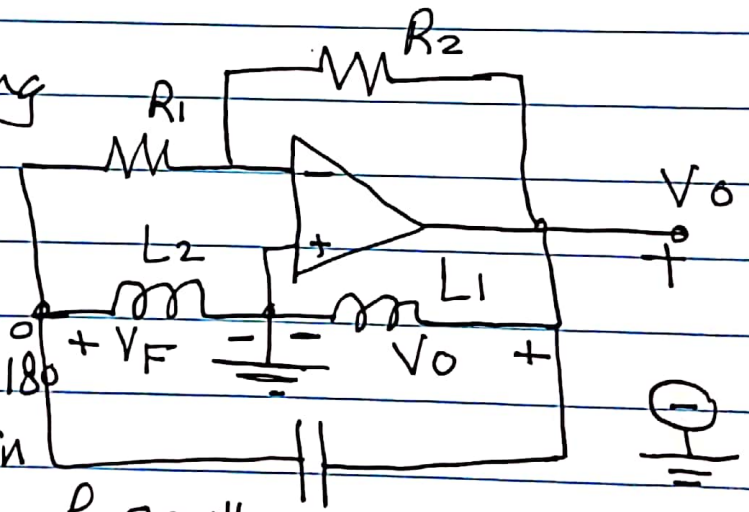 R2
R1
−
Vo
+
+
L2
L1
+ VF − − Vo +
180
−